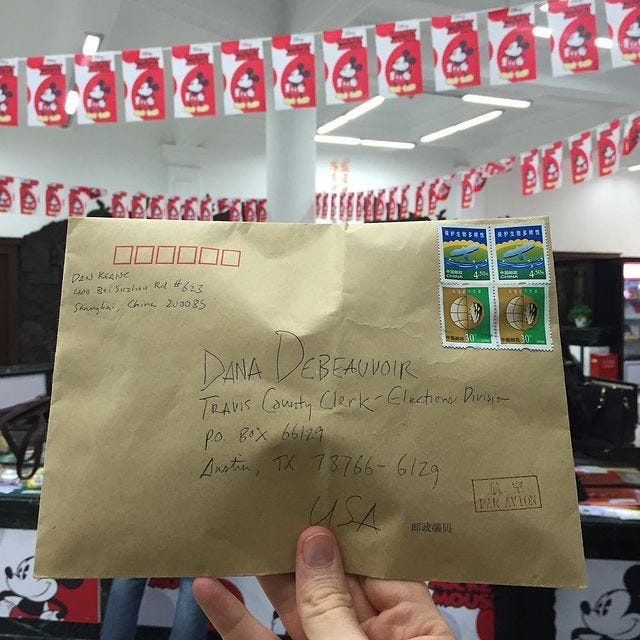 DAN KEANE
400 Bei Suzhou Rd #623
Shanghai, China 200085
保护生物多样性
保护生物多样性
中国邮政
CHINA
4.50元
中国邮政
CHINA
4.50元
中国邮政
30分
中国邮政
30分
DANA DEBEAUVOIR
TRAVIS County Clerk - Elections Division
P.O. BOX 66129
Austin, TX 78766-6129
USA
航空
PAR AVION
邮政编码